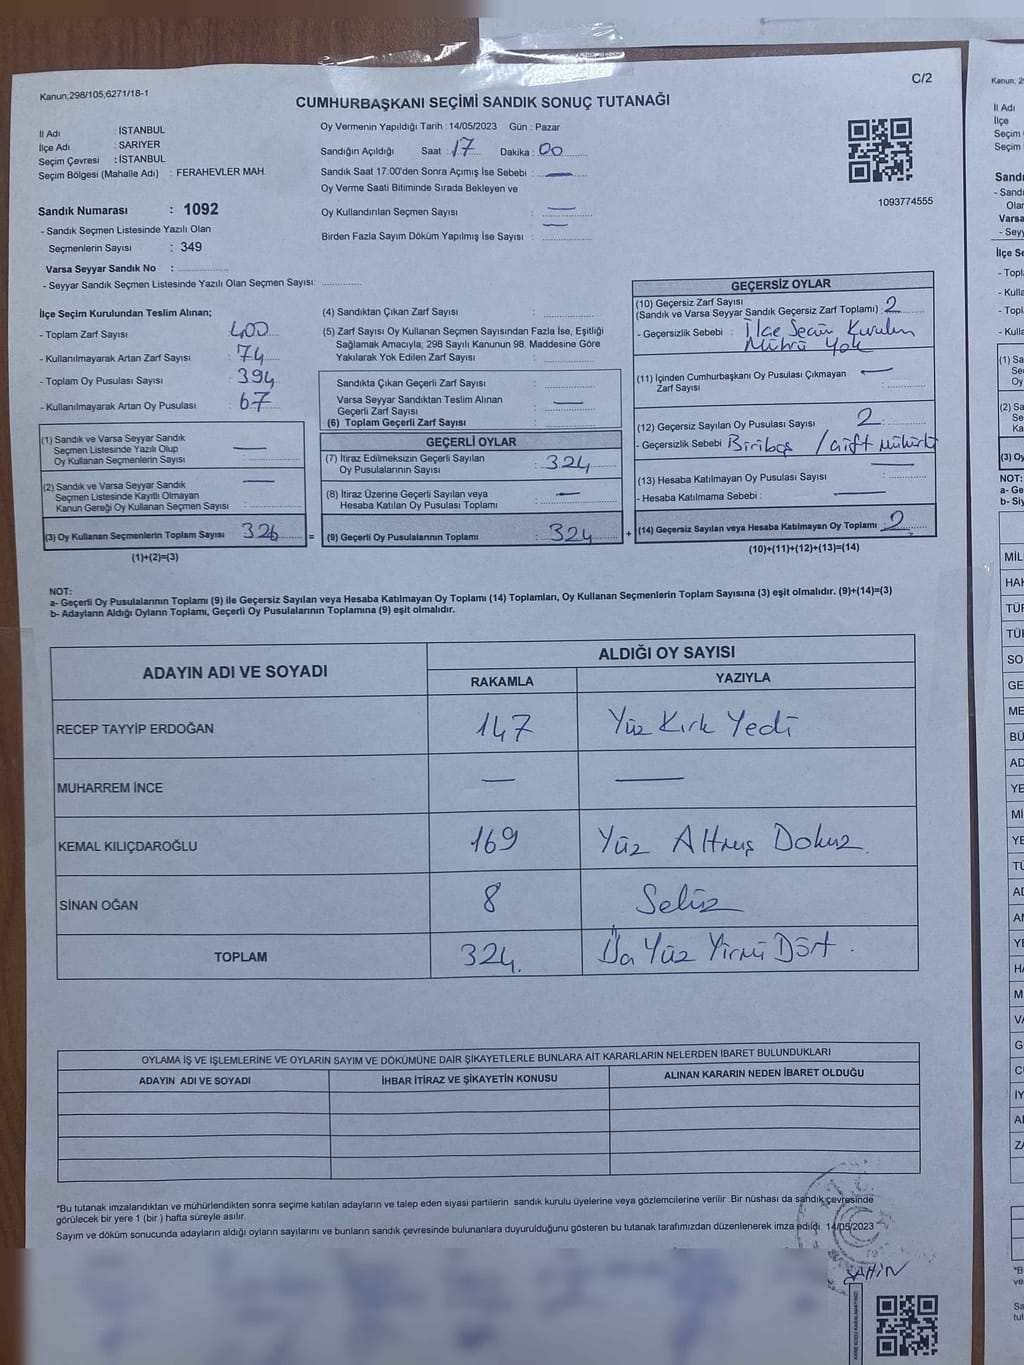 C/2
Kanun;298/105;6271/18-1
CUMHURBAŞKANI SEÇİMİ SANDIK SONUÇ TUTANAĞI
İl Adı : İSTANBUL
İlçe Adı : SARIYER
Seçim Çevresi : İSTANBUL
Seçim Bölgesi (Mahalle Adı) : FERAHEVLER MAH.
Oy Vermenin Yapıldığı Tarih : 14/05/2023 Gün : Pazar
Sandığın Açıldığı Saat : 17 Dakika : 00
Sandık Saat 17:00'den Sonra Açımış İse Sebebi : —
Oy Verme Saati Bitiminde Sırada Bekleyen ve
Oy Kullandırılan Seçmen Sayısı : —
Birden Fazla Sayım Döküm Yapılmış İse Sayısı : —
1093774555
Sandık Numarası : 1092
- Sandık Seçmen Listesinde Yazılı Olan
Seçmenlerin Sayısı : 349
Varsa Seyyar Sandık No :
- Seyyar Sandık Seçmen Listesinde Yazılı Olan Seçmen Sayısı:
İlçe Seçim Kurulundan Teslim Alınan;
- Toplam Zarf Sayısı : 400
- Kullanılmayarak Artan Zarf Sayısı : 74
- Toplam Oy Pusulası Sayısı : 394
- Kullanılmayarak Artan Oy Pusulası : 67
(1) Sandık ve Varsa Seyyar Sandık
Seçmen Listesinde Yazılı Olup
Oy Kullanan Seçmenlerin Sayısı : —
(2) Sandık ve Varsa Seyyar Sandık
Seçmen Listesinde Kayıtlı Olmayan
Kanun Gereği Oy Kullanan Seçmen Sayısı : —
(3) Oy Kullanan Seçmenlerin Toplam Sayısı 326 =
(1)+(2)=(3)
(4) Sandıktan Çıkan Zarf Sayısı :
(5) Zarf Sayısı Oy Kullanan Seçmen Sayısından Fazla İse, Eşitliği
Sağlamak Amacıyla; 298 Sayılı Kanunun 98. Maddesine Göre
Yakılarak Yok Edilen Zarf Sayısı :
Sandıkta Çıkan Geçerli Zarf Sayısı :
Varsa Seyyar Sandıktan Teslim Alınan
Geçerli Zarf Sayısı : —
(6) Toplam Geçerli Zarf Sayısı :
GEÇERLİ OYLAR
(7) İtiraz Edilmeksizin Geçerli Sayılan
Oy Pusulalarının Sayısı : 324
(8) İtiraz Üzerine Geçerli Sayılan veya
Hesaba Katılan Oy Pusulası Toplamı : —
(9) Geçerli Oy Pusulalarının Toplamı : 324 +
GEÇERSİZ OYLAR
(10) Geçersiz Zarf Sayısı
(Sandık ve Varsa Seyyar Sandık Geçersiz Zarf Toplamı) : 2
- Geçersizlik Sebebi : İlçe Seçim Kurulun
Mührü Yok
(11) İçinden Cumhurbaşkanı Oy Pusulası Çıkmayan
Zarf Sayısı : —
(12) Geçersiz Sayılan Oy Pusulası Sayısı : 2
- Geçersizlik Sebebi Biri boş / çift mühürlü
(13) Hesaba Katılmayan Oy Pusulası Sayısı : —
- Hesaba Katılmama Sebebi : —
(14) Geçersiz Sayılan veya Hesaba Katılmayan Oy Toplamı : 2
(10)+(11)+(12)+(13)=(14)
NOT:
a- Geçerli Oy Pusulalarının Toplamı (9) ile Geçersiz Sayılan veya Hesaba Katılmayan Oy Toplamı (14) Toplamları, Oy Kullanan Seçmenlerin Toplam Sayısına (3) eşit olmalıdır. (9)+(14)=(3)
b- Adayların Aldığı Oyların Toplamı, Geçerli Oy Pusulalarının Toplamına (9) eşit olmalıdır.
ADAYIN ADI VE SOYADI
ALDIĞI OY SAYISI
RAKAMLA YAZIYLA
RECEP TAYYİP ERDOĞAN 147 Yüz Kırk Yedi
MUHARREM İNCE — —
KEMAL KILIÇDAROĞLU 169 Yüz Altmış Dokuz
SİNAN OĞAN 8 Sekiz
TOPLAM 324 Üç Yüz Yirmi Dört.
OYLAMA İŞ VE İŞLEMLERİNE VE OYLARIN SAYIM VE DÖKÜMÜNE DAİR ŞİKAYETLERLE BUNLARA AİT KARARLARIN NELERDEN İBARET BULUNDUKLARI
ADAYIN ADI VE SOYADI İHBAR İTİRAZ VE ŞİKAYETİN KONUSU ALINAN KARARIN NEDEN İBARET OLDUĞU
*Bu tutanak imzalandıktan ve mühürlendikten sonra seçime katılan adayların ve talep eden siyasi partilerin sandık kurulu üyelerine veya gözlemcilerine verilir .Bir nüshası da sandık çevresinde
görülecek bir yere 1 (bir ) hafta süreyle asılır.
Sayım ve döküm sonucunda adayların aldığı oyların sayılarını ve bunların sandık çevresinde bulunanlara duyurulduğunu gösteren bu tutanak tarafımızdan düzenlenerek imza edildi. 14/05/2023
ŞAHİN